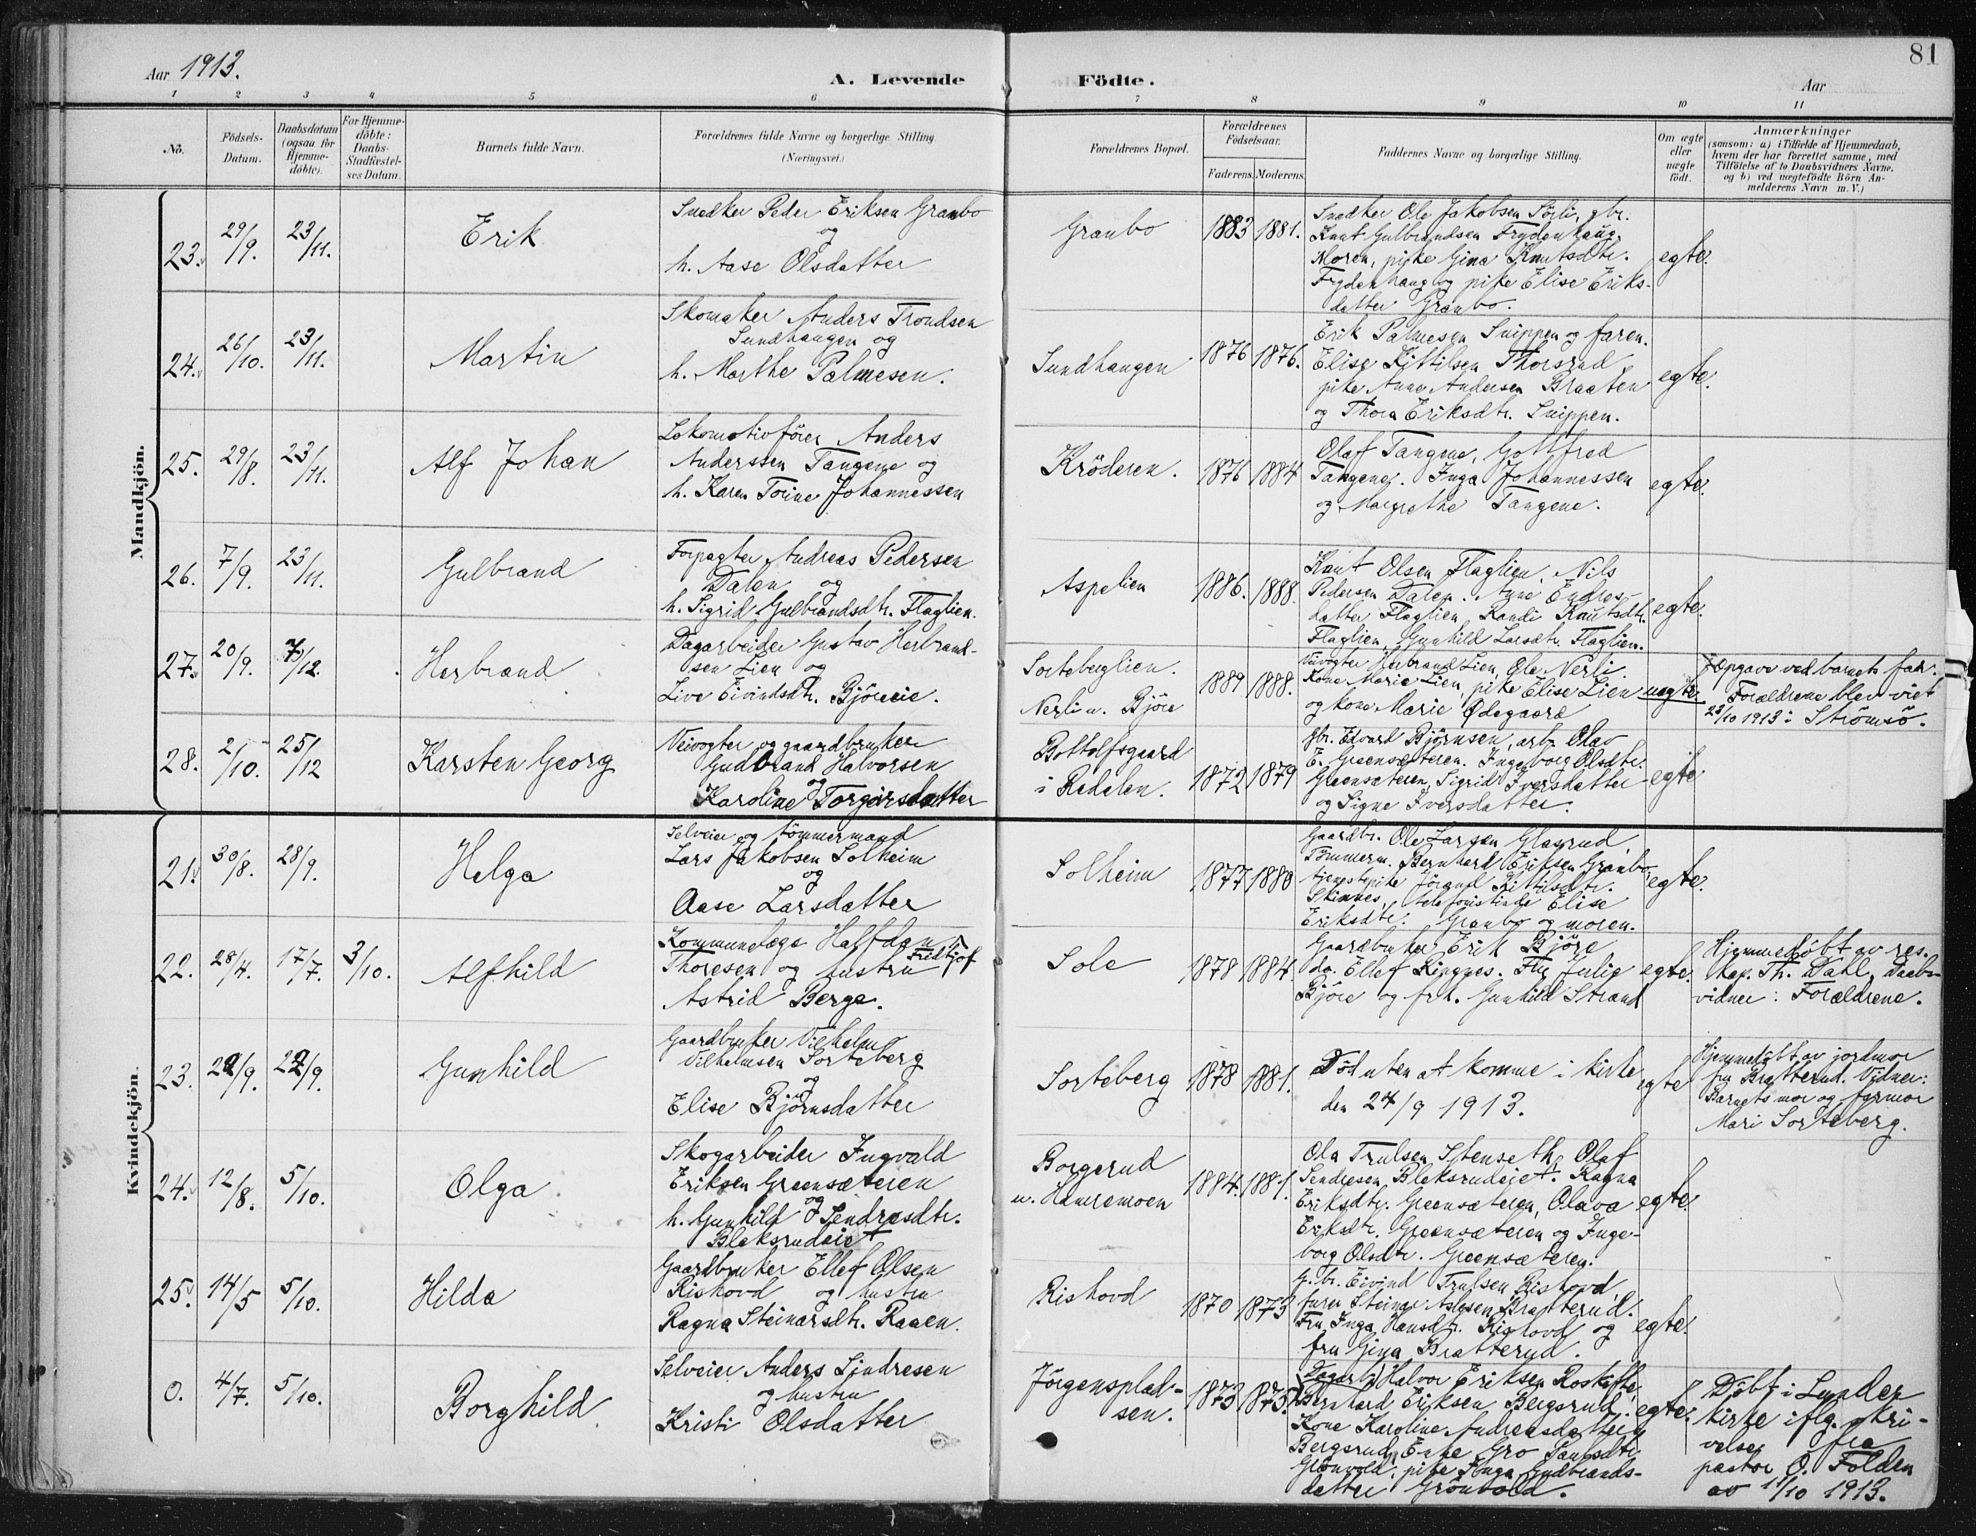 81
Aar 1913.
A. Levende Födte.
Aar
1 2 3 4 5 6 7 8 9 10 11
No.
Födsels-
Datum.
Daabsdatum
(ogsaa for
Hjemme-
döbte).
For Hjemme-
döbte:
Daabs-
Stadfæstel-
ses Datum.
Barnets fulde Navn.
Forældrenes fulde Navne og borgerlige Stilling
(Næringsvei.)
Forældrenes Bopæl.
Forældrenes
Födselsaar.
Faderens. Moderens.
Faddernes Navne og borgerlige Stilling.
Om ægte
eller
uægte
födt.
Anmærkninger
(saasom: a) i Tilfælde af Hjemmedaab,
hvem der har forrettet samme, med
Tilföielse af to Daabsvidners Navne,
og b) ved uægtefödte Börn An-
melderens Navn m. V.)
Mandkjön.
23. 29/9. 23/11. Erik
Snedker Peder Eriksen Granbo
og
h. Aase Olsdatter
Granbo 1883 1881.
Snedker Ole Jakobsen Sørli, gbr.
Knut Gulbrandsen Frydenhaug,
Moren, pike Gina Knutsdtr.
Frydenhaug og pike Elise Eriks-
datter Granbo.
egte.
24. 26/10. 23/11. Martin
Skomaker Anders Trondsen
Sundhaugen og
h. Marthe Palmesen.
Sundhaugen 1876 1876.
Erik Palmesen Snippen og faren.
Elise Kittilsen Thorsrud
pike Anne Andersen Braaten
og Thora Eriksdtr. Snippen.
egte.
25. 29/8. 23/11. Alf Johan
Lokomotivfører Anders
Anderssen Tangene og
h. Karen Torine Johannessen
Kröderen. 1876 1884
Olaf Tangene, Gottfred
Tangene. Inga Johannessen
og Margrethe Tangene.
egte.
26. 7/9. 23/11. Gulbrand
Forpagter Andreas Pedersen
Dalen og
h. Sigrid Gulbrandsdtr. Flaglien.
Aspelien 1886. 1888.
Knut Olsen Flaglien, Nils
Pedersen Dalen. Anne Endres-
datter Flaglien, Randi Knutsdtr.
Flaglien, Gunhild Larsdtr. Flaglien.
egte.
27. 20/9. 7/12. Herbrand
Dagarbeider Gustav Herbrand-
sen Lien og
Live Eivindsdtr. Björeeie.
Sorteberglien.
Nerli u. Björe
1889 1888.
Veivogter Herbrand Lien, Ole Nerli.
Kone Marie Lien, pike Elise Lien
og kone Marie Ødegaard
uegte.
Opgave ved barnets far.
Forældrene blev viet
23/10 1913 i Strömsö.
28. 2/10. 25/12 Karsten Georg
Veivogter og gaardbruker
Gudbrand Halvorsen
og
Karoline Torgersdatter
Bottolfsgaard
i Redalen.
1872 1879
gbr. Edvard Bjørnsen, arb. Olav
E. Greensæteren. Ingeborg Olsdtr.
Greensæteren, Sigrid Iversdatter
og Signe Iversdatter.
egte
Kvindekjön.
21. 30/8. 28/9. Helga
Selveier og tømmermand
Lars Jakobsen Solheim
og
Aase Larsdatter
Solheim 1877 1880
Gaardbr. Ole Larsen Glasrud,
Tømmerm. Bernhard Eriksen Granbo,
tjenestepike Jørand Kittilsdtr.
Skinnes, telefonistinde Elise
Eriksdtr. Granbo og moren.
egte.
22. 28/4. 17/7. 3/10. Alfhild
Kommunelæge Halfdan Fridtjof
Thoresen og hustru
Astrid Berge.
Sole 1878 1884.
Gaardbruker Erik Björe
do. Ellef Ringnes. Fru Julie
Björe og frk. Gunhild Strand
egte.
Hjemmedøbt av res.
kap. Th. Dahl, Daabs-
vidner: Forældrene.
23. 22/9. 22/9. Gunhild
Gaardbruker Vilhelm
Vilhelmsen Sorteberg
og
Elise Bjørnsdatter
Sorteberg 1878 1881.
Död uten at komme i kirke
den 24/9 1913.
egte
Hjemmedøbt av jordmor
fru Bratterud. Vidner:
Barnets mor og farmor
Mari Sorteberg.
24. 12/8. 5/10. Olga
Skogarbeider Ingvald
Eriksen Greensæteren
og
h. Gunhild Sendresdtr.
Bleksrudeiet
Borgerud
u. Hamremoen
1884. 1881.
Ola Trulsen Stenseth, Olaf
Sendresen Bleksrudeiet. Ragna
Eriksdtr. Greensæteren, Olava
Eriksdtr. Greensæteren og Inge-
borg Olsdtr. Greensæteren.
egte.
25. 14/5 5/10. Hilda
Gaardbruker Ellef Olsen
Rishovd og hustru
Ragna Steinarsdtr. Raaen.
Rishovd 1870 1873
G. br. Eivind Trulsen Rishovd,
furer Steinar Aslesen Bratterud.
Fru Inga Hansdtr. Rishovd og
fru Gina Bratterud.
egte.
0. 4/7. 5/10. Borghild
Selveier Anders Sindresen
og hustru
Kristi Olsdatter
Jörgensplad-
sen.
1873 1873.
Halvor Eriksen Roskifte,
Bernhard Eriksen Bergsrud.
Kone Karoline Andreasdatter
Bergsrud, Enke Gro Paulsdtr.
Grönvold, pike Inga Gudbrands-
datter Grönvold.
egte.
Døbt i Lunder
kirke iflg. skri-
velse fra
pastor O. Folden
av 11/10 1913.